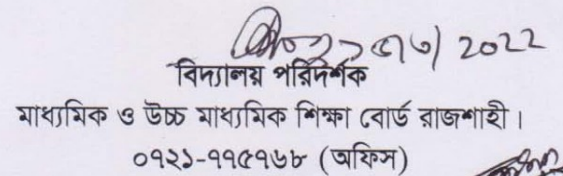 2022
বিদ্যালয় পরিদর্শক
মাধ্যমিক ও উচ্চ মাধ্যমিক শিক্ষা বোর্ড রাজশাহী।
০৭২১-৭৭৫৭৬৮ (অফিস)